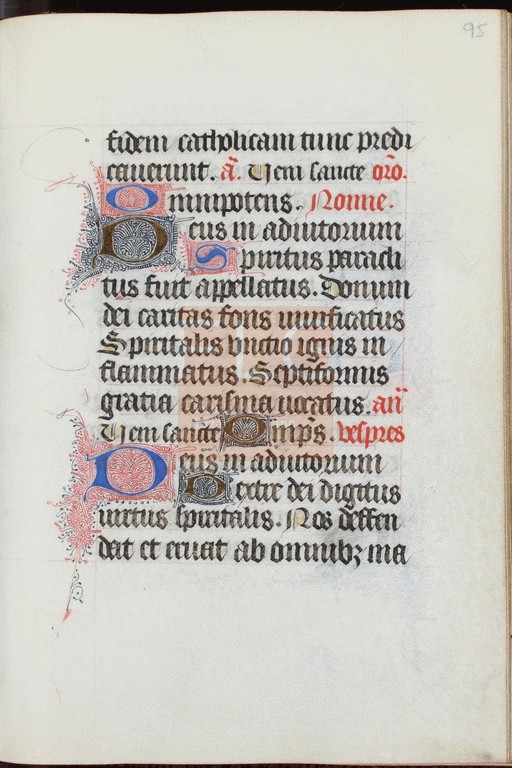 95
fidem catholicam tunc predi
cauerunt. a͞. Veni sancte or͞o.
Omnipotens. Nonne.
Deus in adiutorium
Spiritus paracli
tus fuit appellatus. Donum
dei caritas fons uiuificatus
Spiritalis vnctio ignis in
flammatus. Septiformis
gratia carisma uocatus. añ
Veni sancte Omp̄s. vespres
Deus in adiutorium
Dextre dei digitus
uirtus spiritalis. Nos deffen
dat et eruat ab omnibꝫ ma